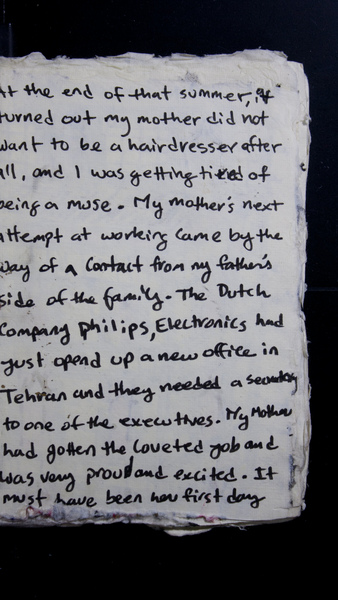 At the end of that summer, it
turned out my mother did not
want to be a hairdresser after
all, and I was getting tired of
being a muse. My mother's next
attempt at working came by the
way of a contact from my father's
side of the family. The Dutch
Company philips, Electronics had
just opend up a new office in
Tehran and they needed a secretary
to one of the executives. My Mother
had gotten the coveted job and
was very proud and excited. It
must have been her first day